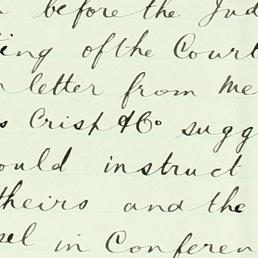 before the Jud
ing of the Court
letter from Me
s Crisp & Co sugg
ould instruct
theirs and the
sel in Conferen